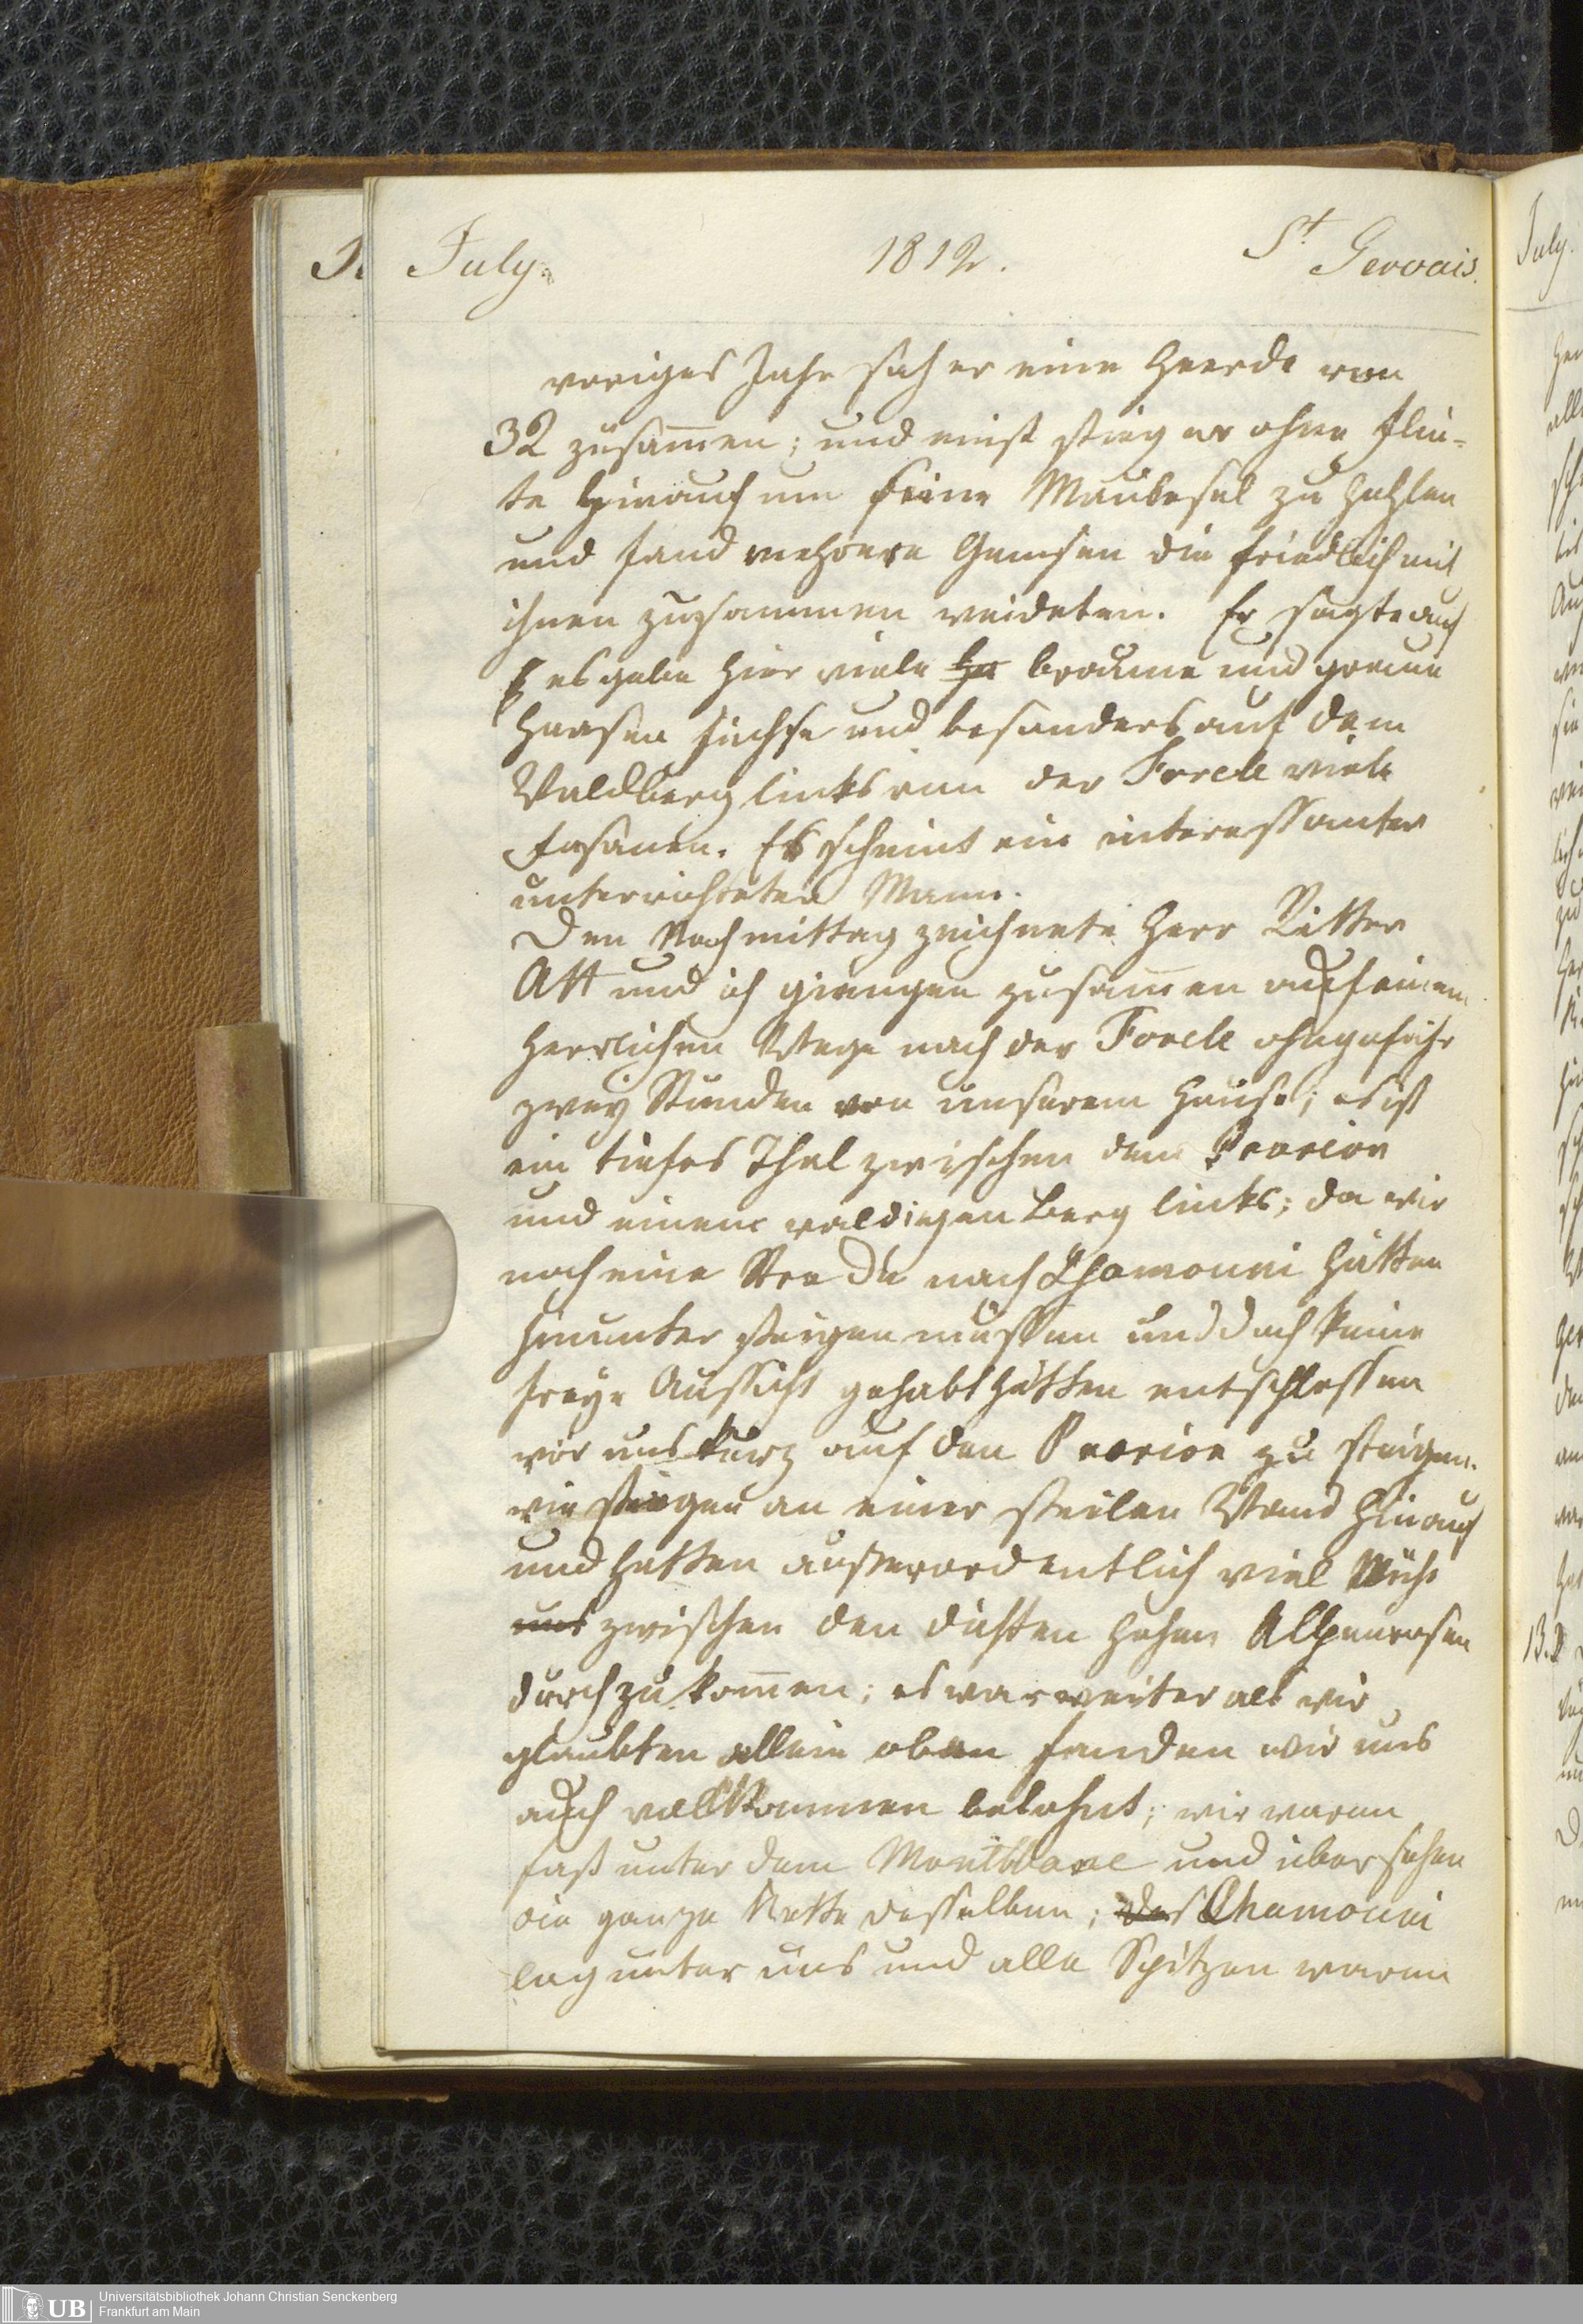 July. 1812. St Gervais.
voriges Jahr sah er eine Heerde von
32 zusam̄en; und einst stieg er ohne Flin-
te hinauf um seine Maulesel zu hohlen
und fand mehrere Gemsen die friedlich mit
ihnen zusammen weideten. Er sagte auch
es gebe hier viele braune und graue
Haasen Füchse und besonders auf dem
Waldberg links von der Forcle viele
Fasanen. Er scheint ein interessanter
unterrichteter Mann.
Den Nachmittag zeichnete Herr Ritter
Att und ich giengen zusam̄en auf einem
herrlichen Wege nach der Forcle ohngefähr
zwey Stunden von unserem Hause; es ist
ein tiefes Thal zwischen dem Prarion
und einem waldigen Berg links; da wir
noch eine Stunde nach Chamouni hätten
hinunter steigen müssen und doch keine
freye Aussicht gehabt hätten entschlossen
wir uns kurz auf den Prarion zu steigen.
wir stiegen an einer steilen Wand hinauf
und hatten außerordentlich viel Mühe
uns zwischen den dichten hohen Alpenrosen
durchzukom̄en; es war weiter als wir
glaubten allein oben fanden wir uns
auch vollkommen belohnt; wir waren
fast unter dem Montblanc und übersahen
die ganze Kette desselben; Chamouni
lag unter uns und alle Spitzen waren
July.
13.
Universitätsbibliothek Johann Christian Senckenberg
Frankfurt am Main
UB